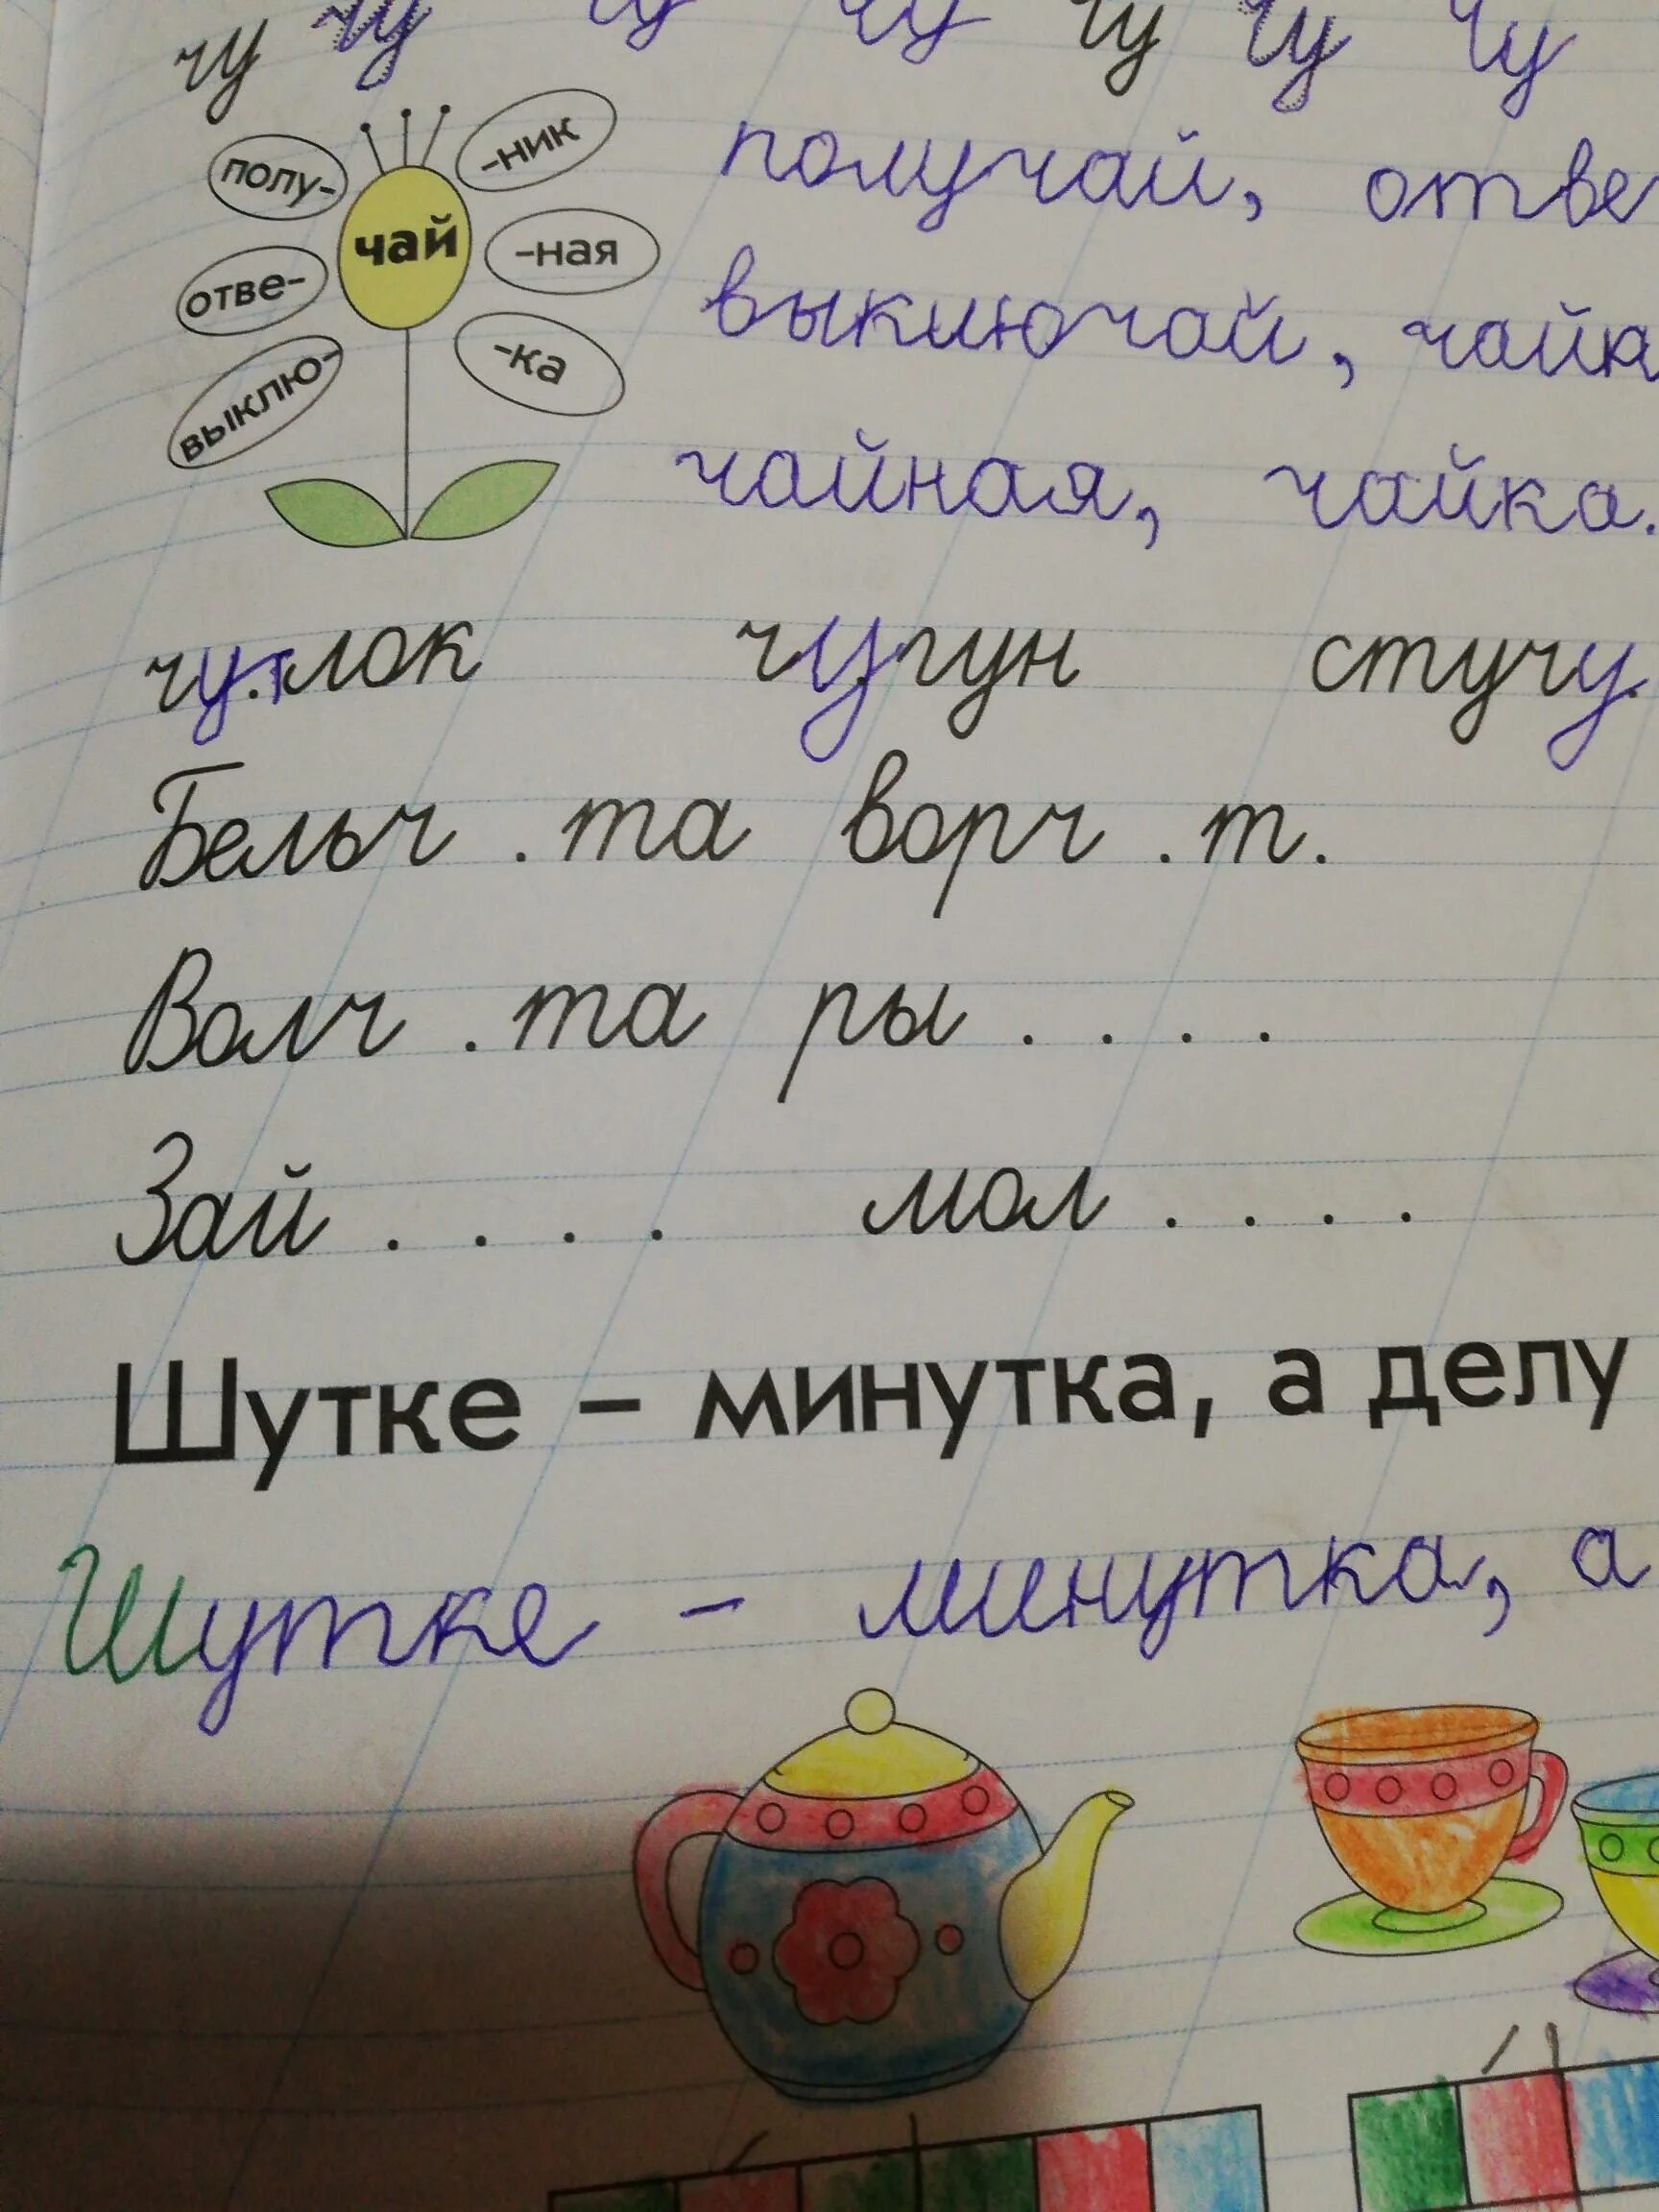 чу чу чу чу чу чу чу
полу- -ник
чай
отве- -ная
выклю- -ка
получай, отве
выключай, чайн
чайная, чайка.
чу.глок чугун стучу.
Бельч . та ворч . т.
Волч . та ры . . . .
Зай . . . . мол . . . .
Шутке – минутка, а делу
Шутке – минутка, а